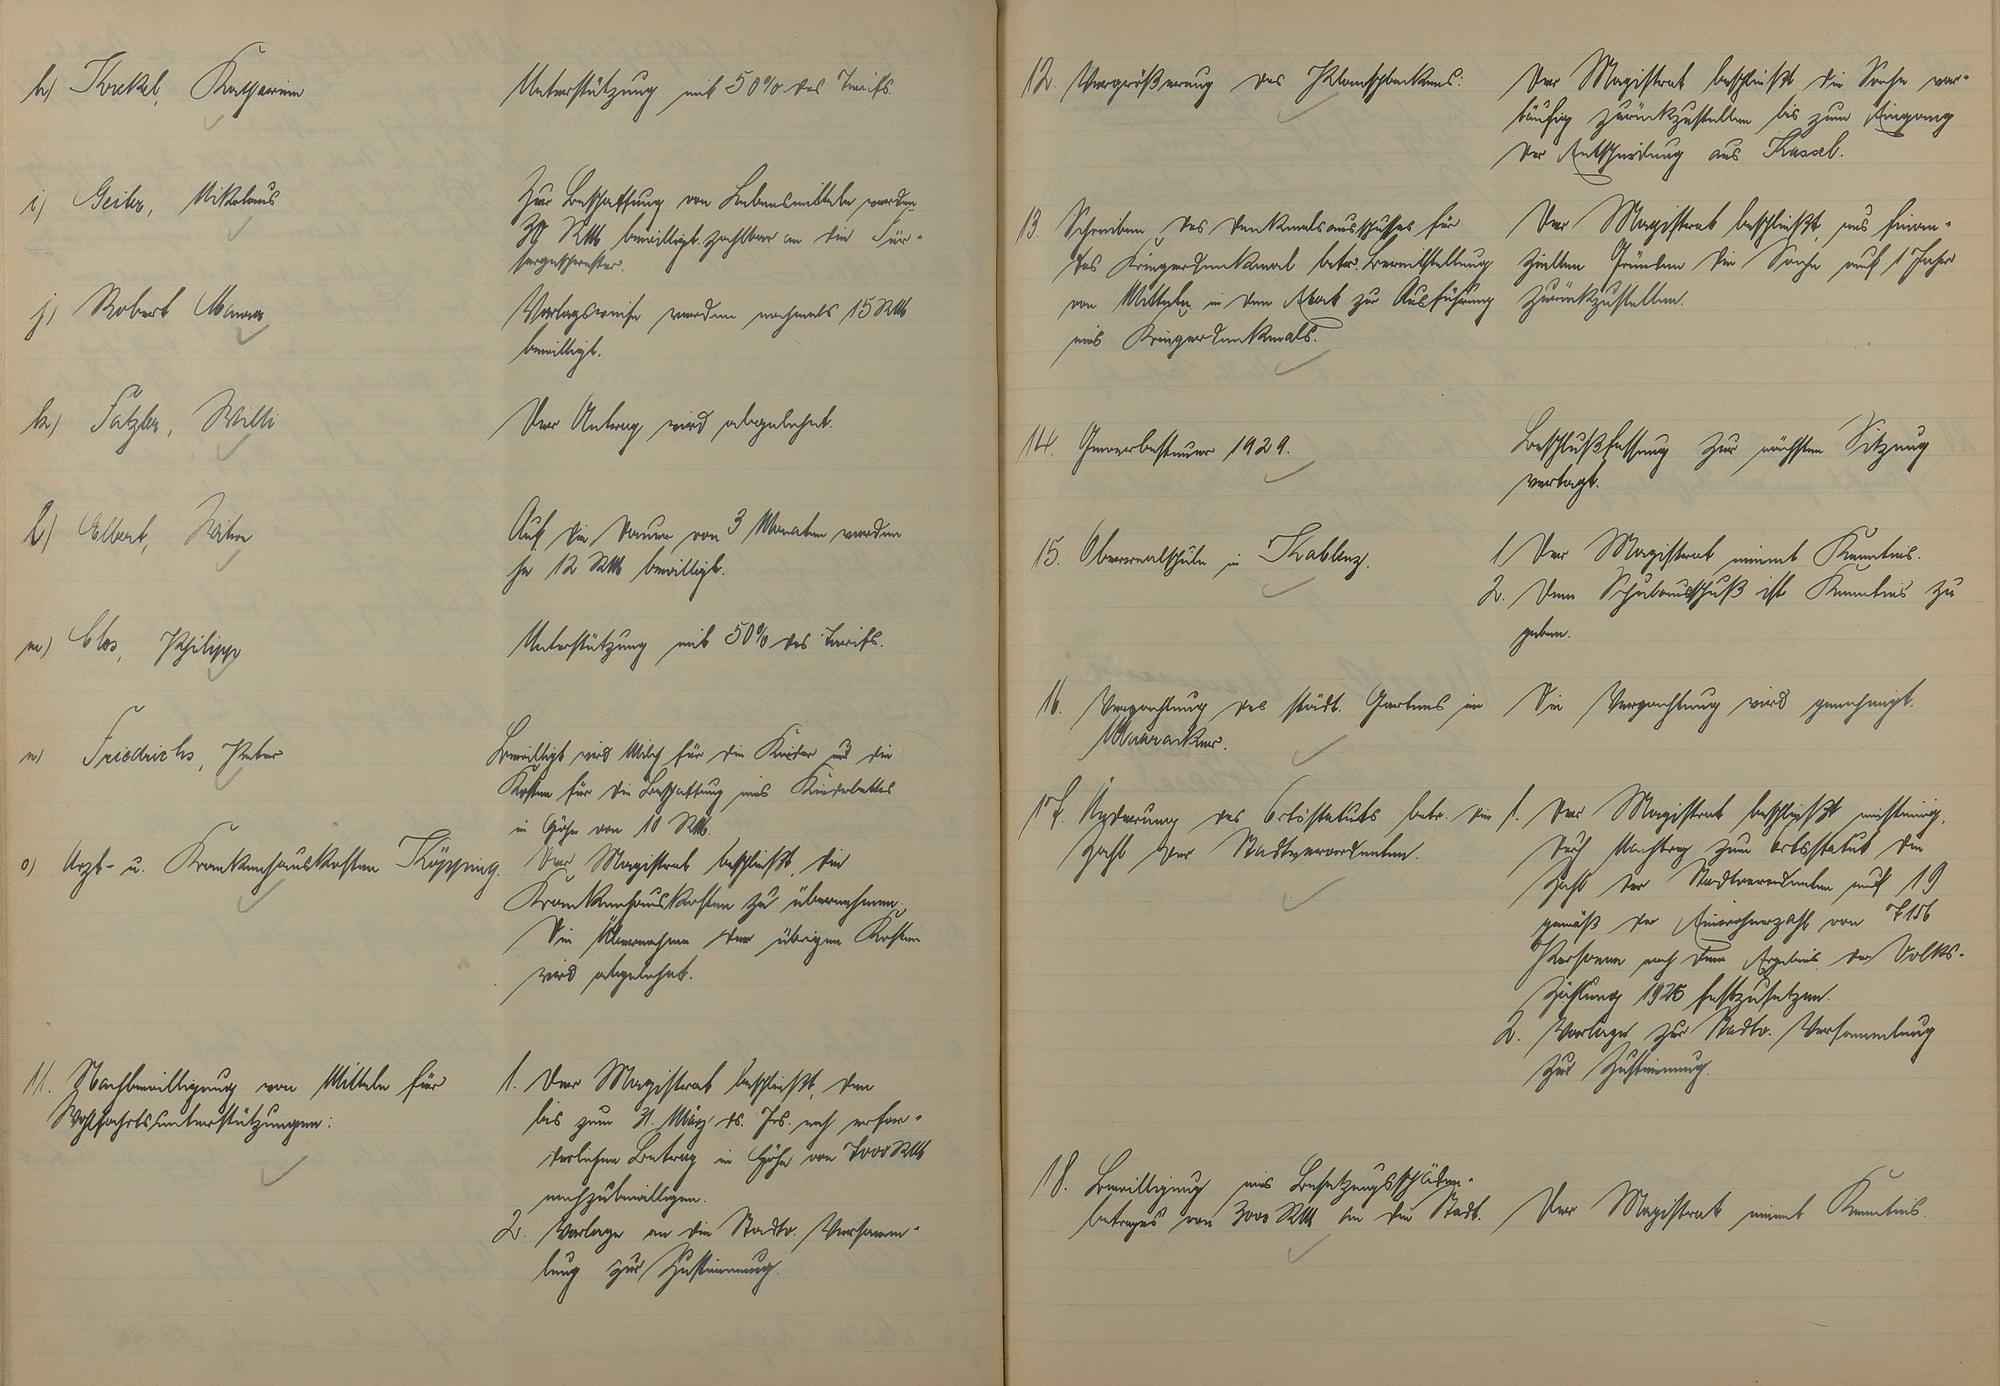 h) Krekel, Katharina
Unterstützung mit 50% des Tarifs.
i) Geiler, Nikolaus
Zur Beschaffung von Lebensmitteln werden
30 RM bewilligt, zahlbar an die Für-
sorgeschwester.
j) Robert
Vorlagsweise werden nochmals 15 RM
bewilligt.
k) Fatzler, Willi
Der Antrag wird abgelehnt.
l) Elbert, Witwe
Auf die Dauer von 3 Monaten werden
je 12 RM bewilligt.
m) Clos, Philipp
Unterstützung mit 50% des Tarifs.
n) Friedrichs, Peter
Bewilligt wird Milch für die Kinder und die
Kosten für die Beschaffung eines Kinderbettes
in Höhe von 10 RM.
o) Arzt- u. Krankenhauskosten Köpping.
Der Magistrat beschließt, die
Krankenhauskosten zu übernehmen.
Die Übernahme der übrigen Kosten
wird abgelehnt.
11. Nachbewilligung von Mitteln für
Wohlfahrtsunterstützungen:
1. Der Magistrat beschließt, den
bis zum 31. März ds. Js. noch erfor-
derlichen Betrag in Höhe von 7000 RM
nachzubewilligen.
2. Vorlage an die Stadtv. Versamm-
lung zur Zustimmung.
12. Vergrößerung des Klärbeckens:
Der Magistrat beschließt die Sache vor-
läufig zurückzustellen bis zum Eingang
der Entscheidung aus Kassel.
13. Schreiben des Denkmalsausschusses für
das Kriegerdenkmal betr. Bereitstellung
von Mitteln in dem Etat zur Ausführung
eines Kriegerdenkmals.
Der Magistrat beschließt, aus finan-
ziellen Gründen die Sache auf 1 Jahr
zurückzustellen.
14. Gewerbesteuer 1929.
Beschlußfassung zur nächsten Sitzung
vertagt.
15. Oberrealschule in Koblenz.
1. Der Magistrat nimmt Kenntnis.
2. Dem Schulausschuß ist Kenntnis zu
geben.
16. Verpachtung des städt. Gartens im
Die Verpachtung wird genehmigt.
17. Änderung des Ortsstatuts betr. die
Zahl der Stadtverordneten.
1. Der Magistrat beschließt einstimmig,
durch Nachtrag zum Ortsstatut die
Zahl der Stadtverordneten auf 19
gemäß der Einwohnerzahl von 7156
Personen nach dem Ergebnis der Volks-
zählung 1925 festzusetzen.
2. Vorlage zur Stadtv. Versammlung
zur Zustimmung.
18. Bewilligung eines Besatzungsschäden-
betrages von 3000 RM an die Stadt.
Der Magistrat nimmt Kenntnis.